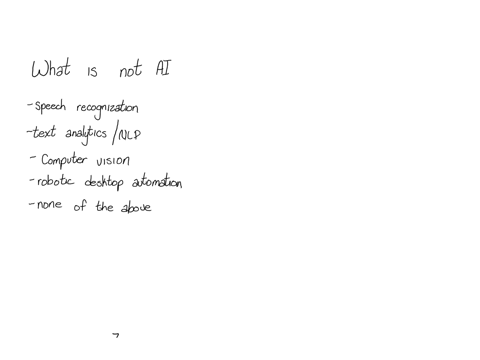 What is not AI
- speech recognization
- text analytics / NLP
- Computer vision
- robotic desktop automation
- none of the above
7